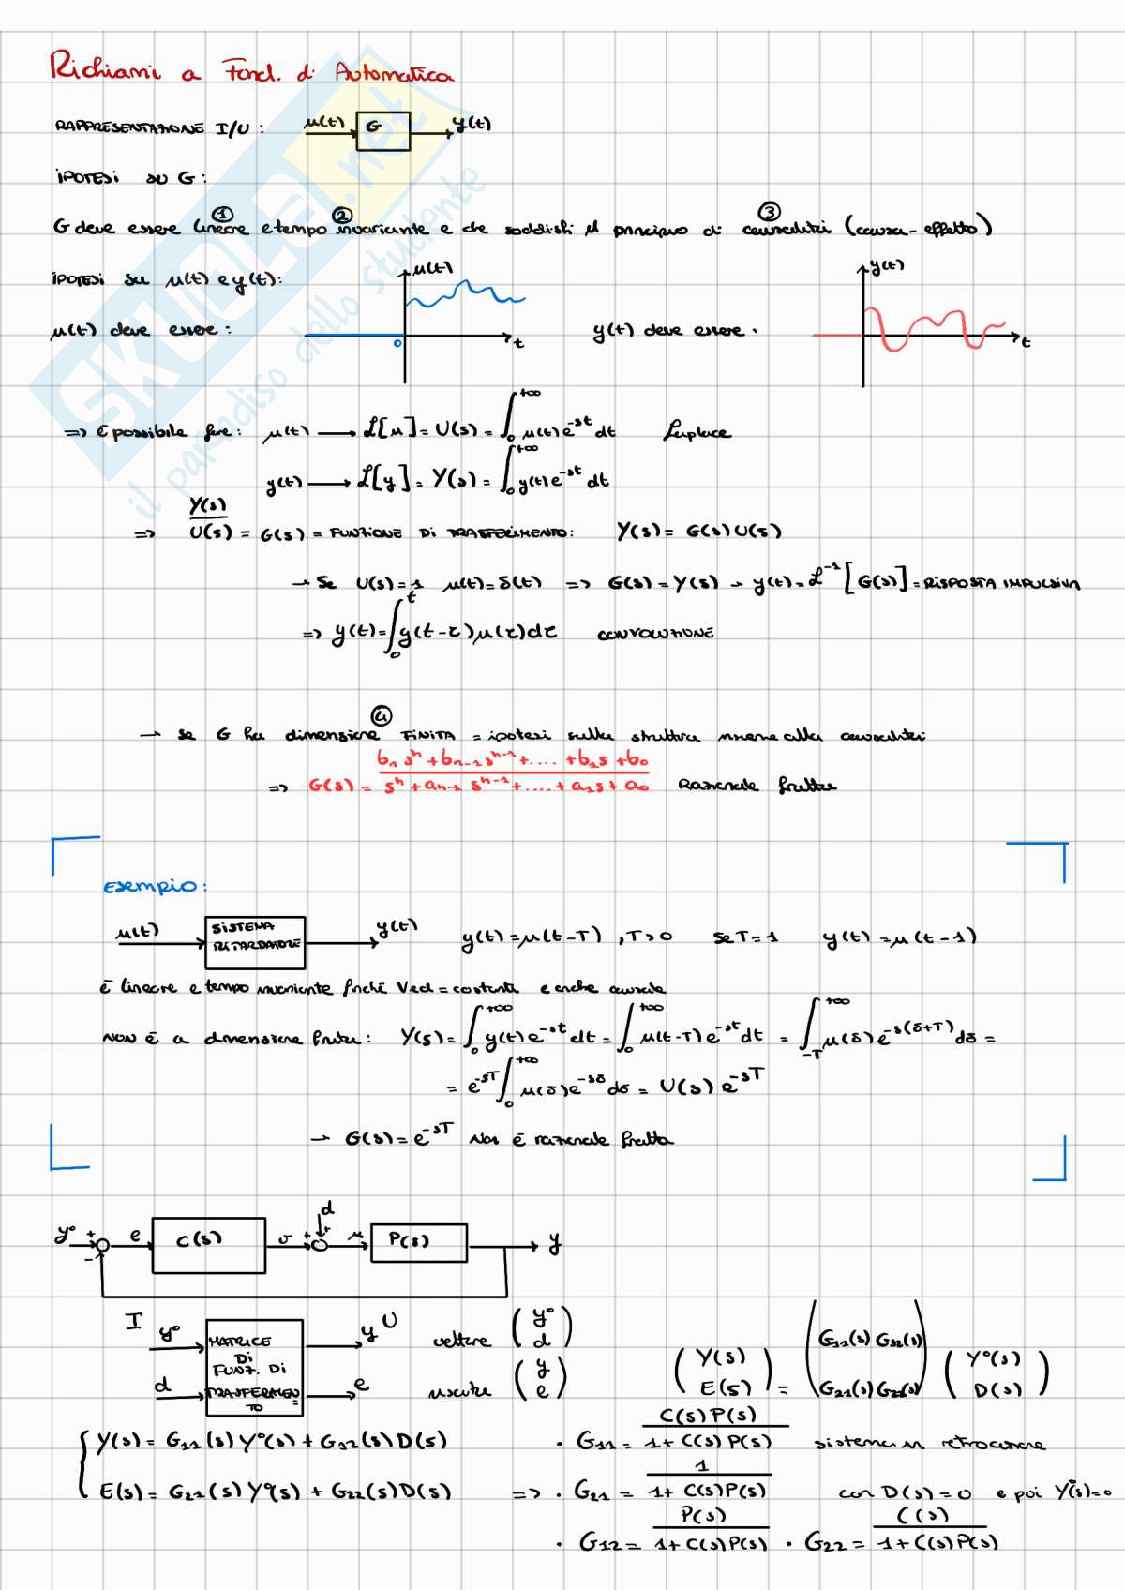 Richiami a Fond. di Automatica
RAPPRESENTAZIONE I/U : u(t) G y(t)
IPOTESI SU G :
① ② ③
G deve essere lineare e tempo invariante e che soddisfi il principio di causalità (causa - effetto)
IPOTESI su u(t) e y(t): u(t) y(t)
u(t) deve essere : 0 t y(t) deve essere : t
=> è possibile fare: u(t) → ℒ[u] = U(s) = ∫₀^{+∞} u(t)e^{-st} dt Laplace
y(t) → ℒ[y] = Y(s) = ∫₀^{+∞} y(t)e^{-st} dt
=> Y(s)/U(s) = G(s) = FUNZIONE DI TRASFERIMENTO: Y(s) = G(s)U(s)
→ Se U(s)=1 u(t)=δ(t) => G(s)=Y(s) → y(t)=ℒ^{-1}[G(s)] = RISPOSTA IMPULSIVA
=> y(t)=∫₀^t y(t-τ)u(τ)dτ CONVOLUZIONE
④
→ Se G ha dimensione FINITA = ipotesi sulla struttura insieme alla causalità
=> G(s) = (bₙsⁿ + bₙ₋₁sⁿ⁻¹ + .... + b₁s + b₀)/(sⁿ + aₙ₋₁sⁿ⁻¹ + .... + a₁s + a₀) Razionale fratta
Esempio:
u(t) SISTEMA RITARDATORE y(t) y(t)=u(t-T) , T>0 se T=1 y(t)=u(t-1)
è lineare e tempo invariante finché Ved = costanti e anche causale
NON È a dimensione finita : Y(s)=∫₀^{+∞} y(t)e^{-st}dt = ∫₀^{+∞} u(t-T)e^{-st}dt = ∫_{-T}^{+∞} u(δ)e^{-s(δ+T)}dδ =
= e^{-sT}∫₀^{+∞} u(δ)e^{-sδ}dδ = U(s) e^{-sT}
→ G(s)=e^{-sT} Non è razionale fratta
d
y° + - e C(s) v + + u P(s) y
I y° d MATRICE DI FUNZ. DI TRASFERIMENTO y U e
vettore (y° d)
uscite (y e)
(Y(s) E(s)) = (G₁₁(s) G₁₂(s) G₂₁(s) G₂₂(s)) (Y°(s) D(s))
Y(s) = G₁₁(s)Y°(s) + G₁₂(s)D(s) · G₁₁ = C(s)P(s)/(1+C(s)P(s)) sistema in retroazione
E(s) = G₂₁(s)Y°(s) + G₂₂(s)D(s) => · G₂₁ = 1/(1+C(s)P(s)) con D(s)=0 e poi Y°(s)=0
· G₁₂ = P(s)/(1+C(s)P(s)) · G₂₂ = C(s)/(1+C(s)P(s))
SKUOLA.net
il paradiso dello studente